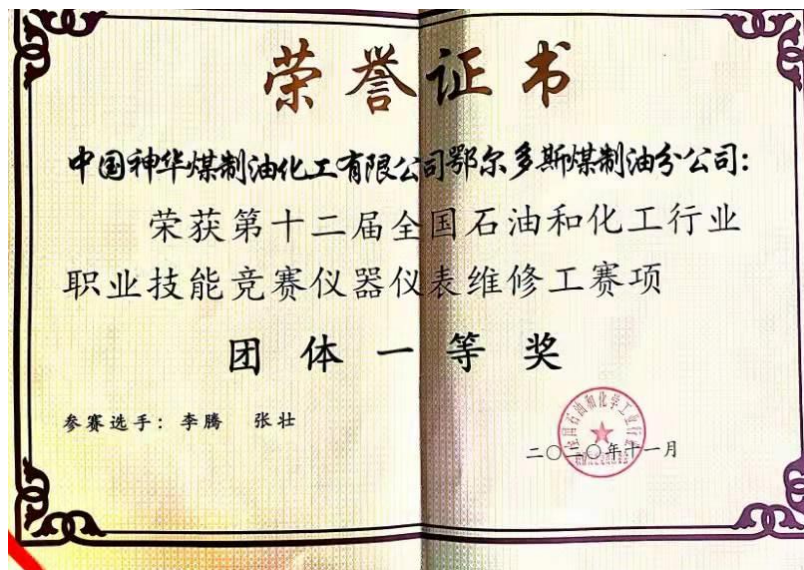 荣誉证书
中国神华煤制油化工有限公司鄂尔多斯煤制油分公司:
荣获第十二届全国石油和化工行业
职业技能竞赛仪器仪表维修工赛项
团体一等奖
参赛选手: 李腾 张壮
二〇二〇年十一月